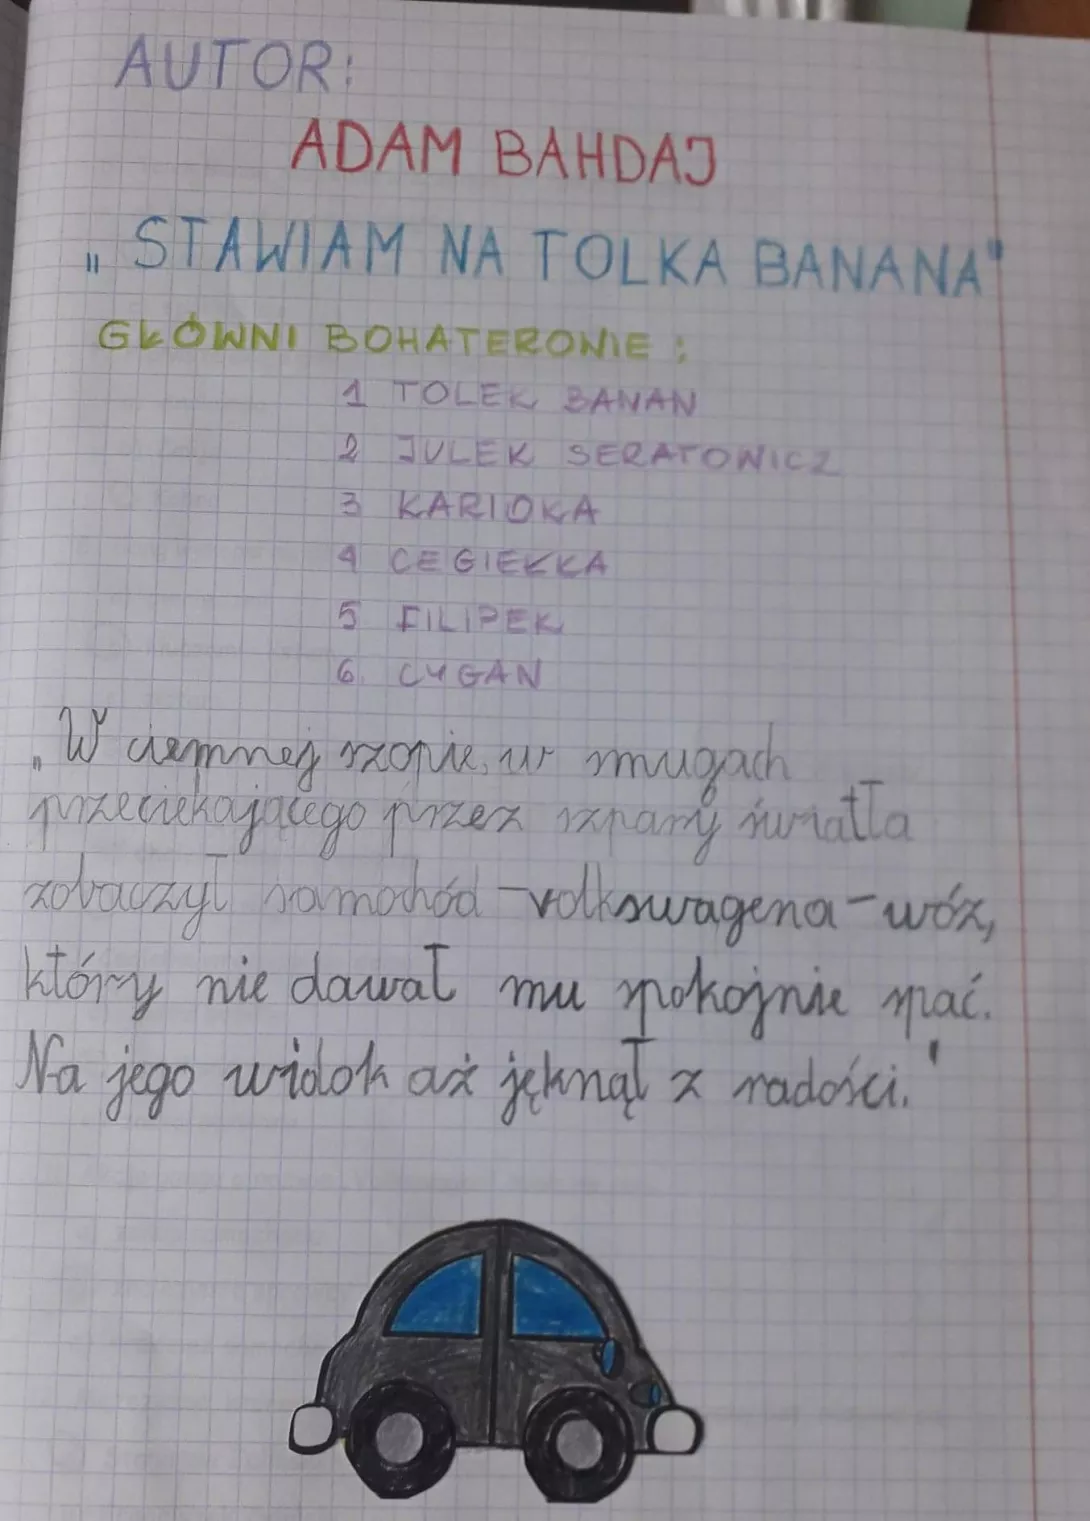 AUTOR:
ADAM BAHDAJ
„STAWIAM NA TOLKA BANANA"
GŁÓWNI BOHATEROWIE:
1 TOLEK BANAN
2 JULEK SERATOWICZ
3 KARIOKA
4 CEGIEŁKA
5 FILIPEK
6. CYGAN
„W ciemnej szopie, w smugach
przeciekającego przez szpary światła
zobaczył samochód - volkswagena - wóz,
który nie dawał mu spokojnie spać.
Na jego widok aż jęknął z radości."